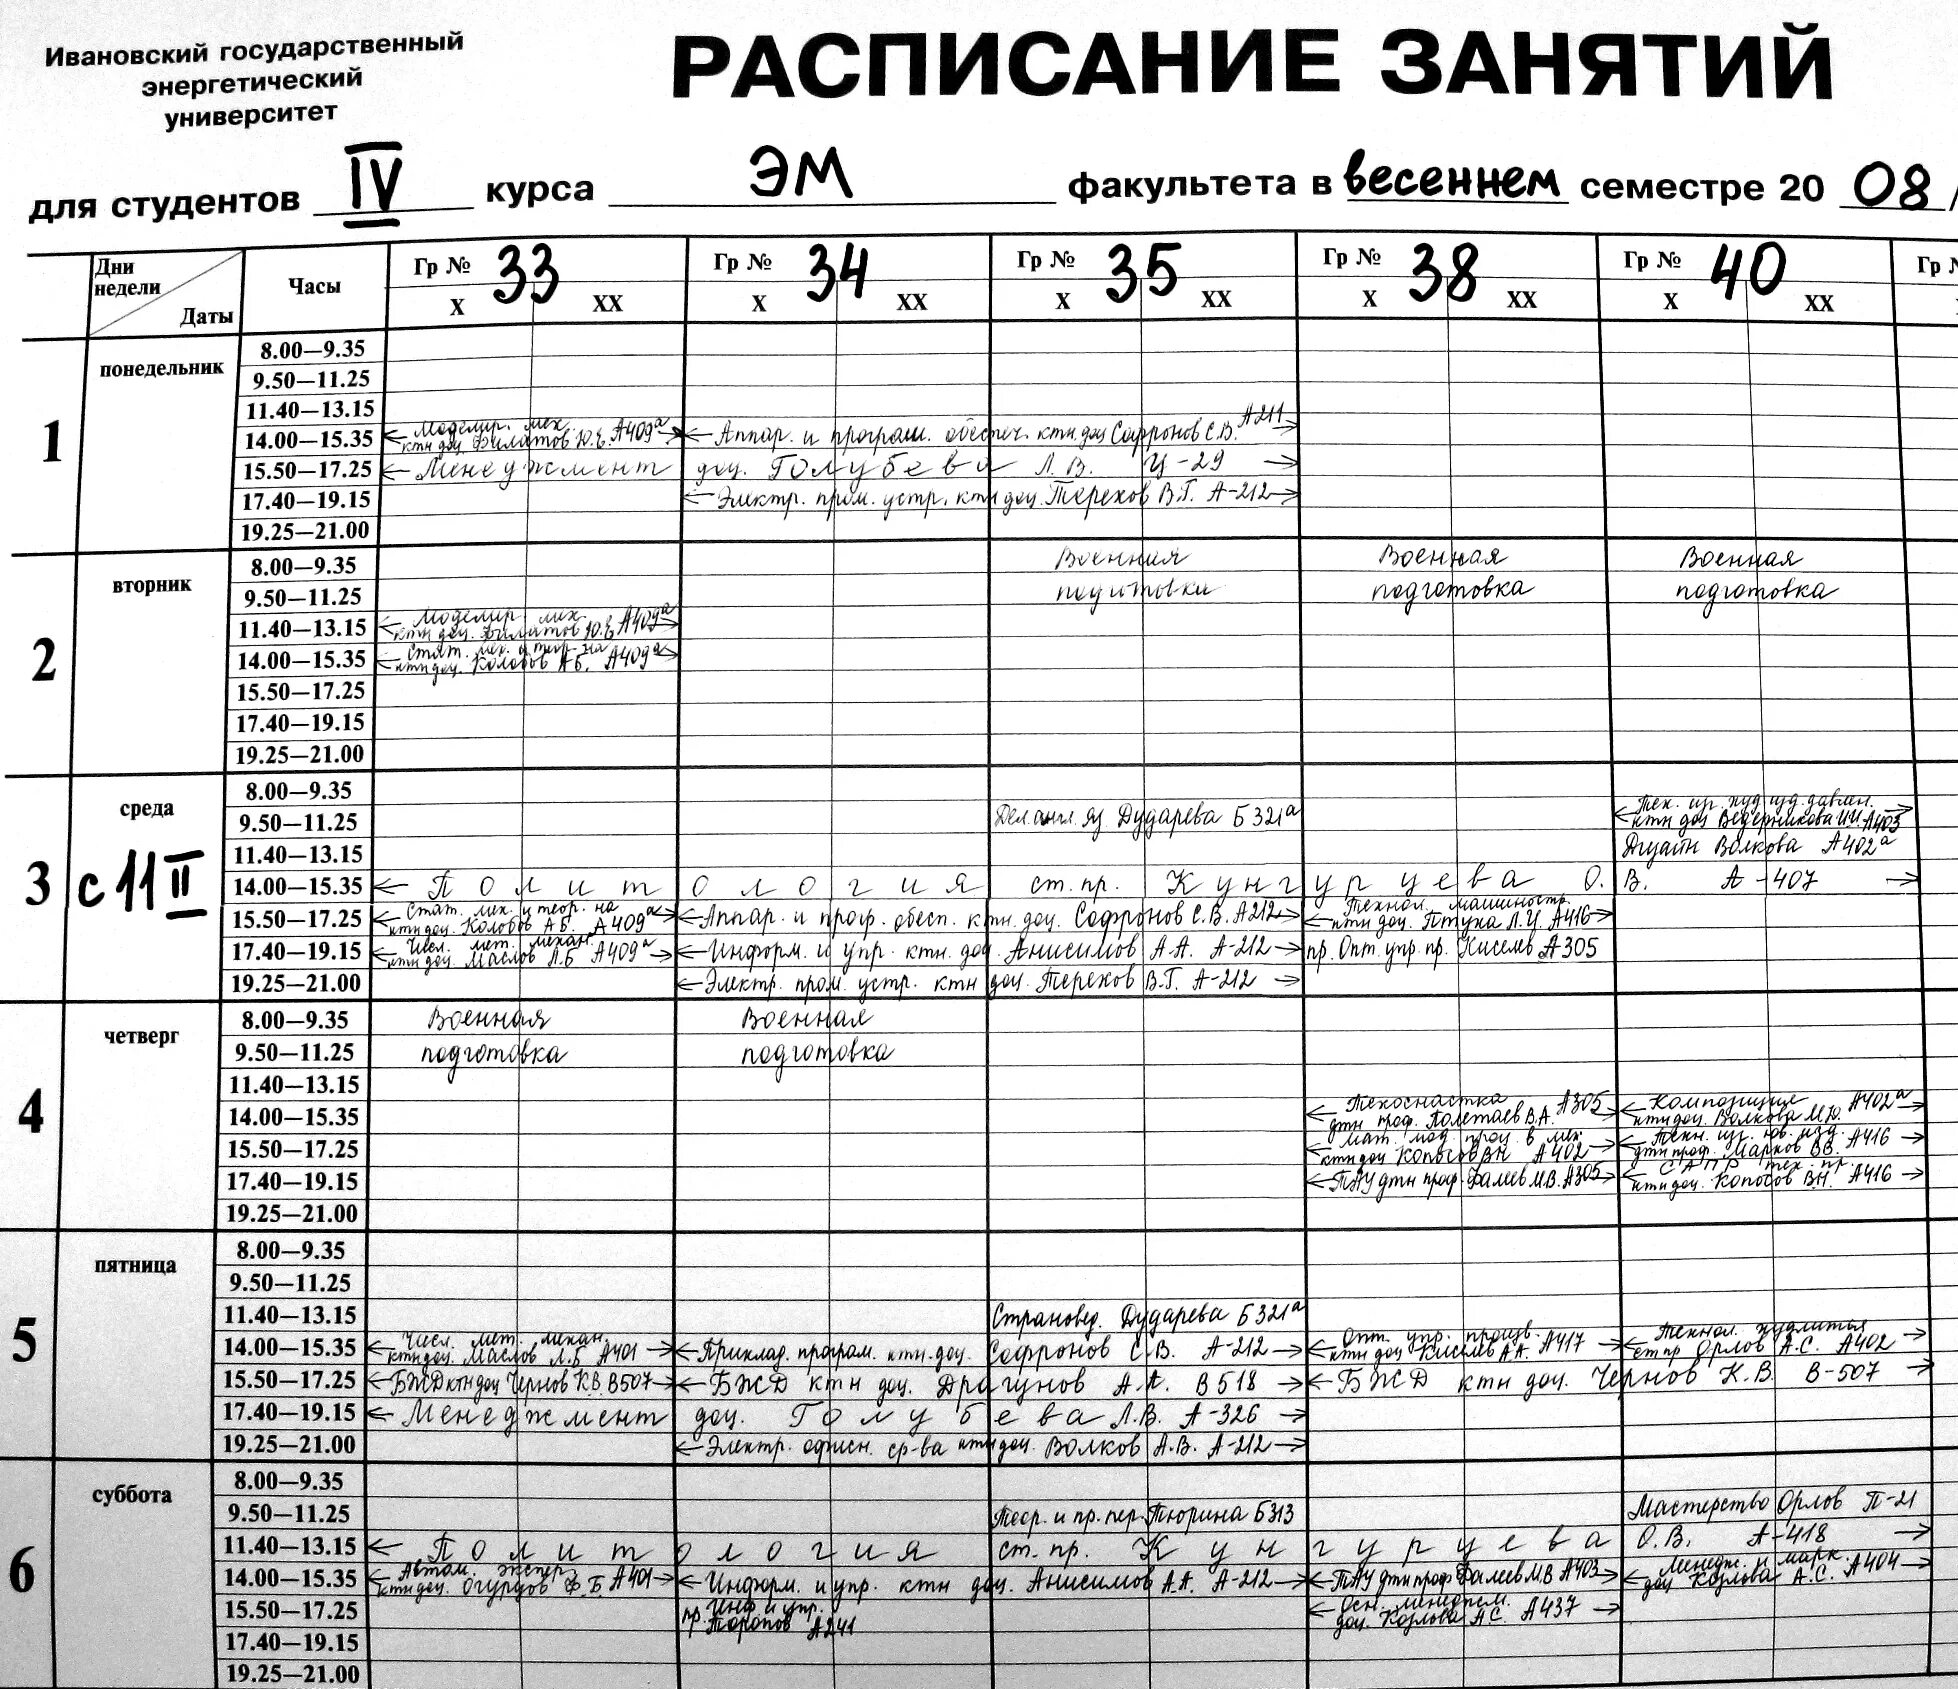 Ивановский государственный
энергетический
университет
РАСПИСАНИЕ ЗАНЯТИЙ
для студентов IV курса ЭМ факультета в весеннем семестре 20 08/
Дни недели Даты Часы Гр № 33 Гр № 34 Гр № 35 Гр № 38 Гр № 40 Гр
X XX X XX X XX X XX X XX
1 понедельник
8.00—9.35
9.50—11.25
11.40—13.15
14.00—15.35 Моделир. мех. ктн доц. Филатов Ю.Е. А409а Аппар. и програм. обеспеч. ктн. доц Софронов С.В. А211
15.50—17.25 Менеджмент доц. Голубева Л.В. Ц-29
17.40—19.15 Электр. пром. устр. ктн доц. Терехов В.Г. А-212
19.25—21.00
2 вторник
8.00—9.35 Военная Военная Военная
9.50—11.25 подготовка подготовка подготовка
11.40—13.15 Моделир. мех. ктн доц. Филатов Ю.Е. А409а
14.00—15.35 Стат. мех. и теор. на ктн доц. Колобов А.Б. А409а
15.50—17.25
17.40—19.15
19.25—21.00
3 среда с 11 II
8.00—9.35
9.50—11.25 Дел. англ. яз Дударева Б321а Тех. из. худ изд. давлен. ктн доц Ведерникова И.И. А403
11.40—13.15 Дизайн Волкова А402а
14.00—15.35 Политология ст. пр. Кунгурцева О.В. А-407
15.50—17.25 Стат. мех. и теор. на ктн доц. Колобов А.Б. А409а Аппар. и прогр. обесп. ктн. доц. Софронов С.В. А212 Технол. машиностр. ктн доц. Птуха Л.И. А416
17.40—19.15 Числ. мет. механ. ктн доц. Маслов Л.Б А409а Информ. и упр. ктн. доц. Анисимов А.А. А-212 пр. Опт. упр. пр. Киселев А305
19.25—21.00 Электр. пром. устр. ктн доц. Терехов В.Г. А-212
4 четверг
8.00—9.35 Военная Военная
9.50—11.25 подготовка подготовка
11.40—13.15
14.00—15.35 Техоснастка дтн проф. Полетаев В.А. А305 Композиция ктн доц. Волкова М.Ю. А402а
15.50—17.25 Мат. мод. проц. в мех. ктн доц Копосов ВН А402 Техн. из. юв. изд. дтн проф. Марков В.В. А416
17.40—19.15 ТАУ дтн проф. Фалеев М.В. А305 САПР тех. пр. ктн доц. Копосов В.Н. А416
19.25—21.00
5 пятница
8.00—9.35
9.50—11.25
11.40—13.15 Страновед. Дударева Б321а
14.00—15.35 Числ. мет. механ. ктн доц. Маслов Л.Б А401 Приклад. програм. ктн. доц. Софронов С.В. А-212 Опт. упр. произв. ктн доц Киселев А.А. А417 Технол. худ литья ст пр Орлов А.С. А402
15.50—17.25 БЖД ктн доц Чернов К.В. В507 БЖД ктн доц. Драгунов А.А. В518 БЖД ктн доц. Чернов К.В. В-507
17.40—19.15 Менеджмент доц. Голубева Л.В. А-326
19.25—21.00 Электр. офисн. ср-ва ктн доц. Волков А.В. А-212
6 суббота
8.00—9.35
9.50—11.25 Теор. и пр. пер. Тюрина Б313 Мастерство Орлов П-21
11.40—13.15 Политология ст. пр. Кунгурцева О.В. А-418
14.00—15.35 Автом. экспер. ктн доц. Огурцов Ф.Б А401 Информ. и упр. ктн доц. Анисимов А.А. А-212 ТАУ дтн проф Фалеев М.В А403 Менедж. и марк. доц Козлова А.С. А404
15.50—17.25 пр. Инф и упр. Торопов А241 Осн. менеджм. доц. Козлова А.С. А437
17.40—19.15
19.25—21.00